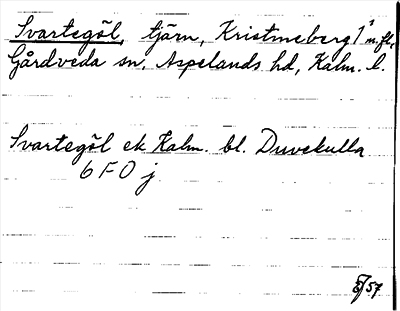 Svartegöl, tjärn, Kristineberg 1¹ m.fl.,
Gårdveda sn, Aspelands hd, Kalm. l.
Svartegöl ek Kalm. bl. Duvekulla
6 F 0 j
/57